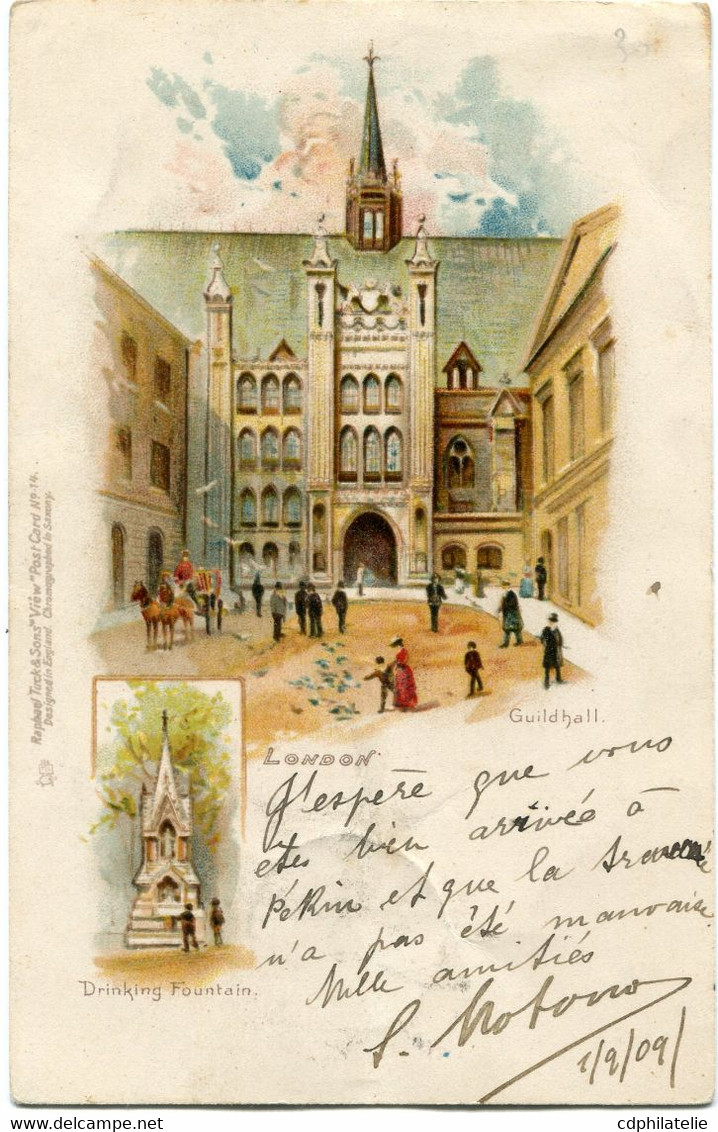 Raphael Tuck & Sons "View" Post Card Nº 14.
Designed in England. Chromographed in Saxony.
Guildhall.
LONDON
Drinking Fountain.
J'espère que vous
êtes bien arrivée à
Pékin et que la
n'a pas été mauvaise
Mille amitiés
S. Motono
1/9/09
cdphilatelie